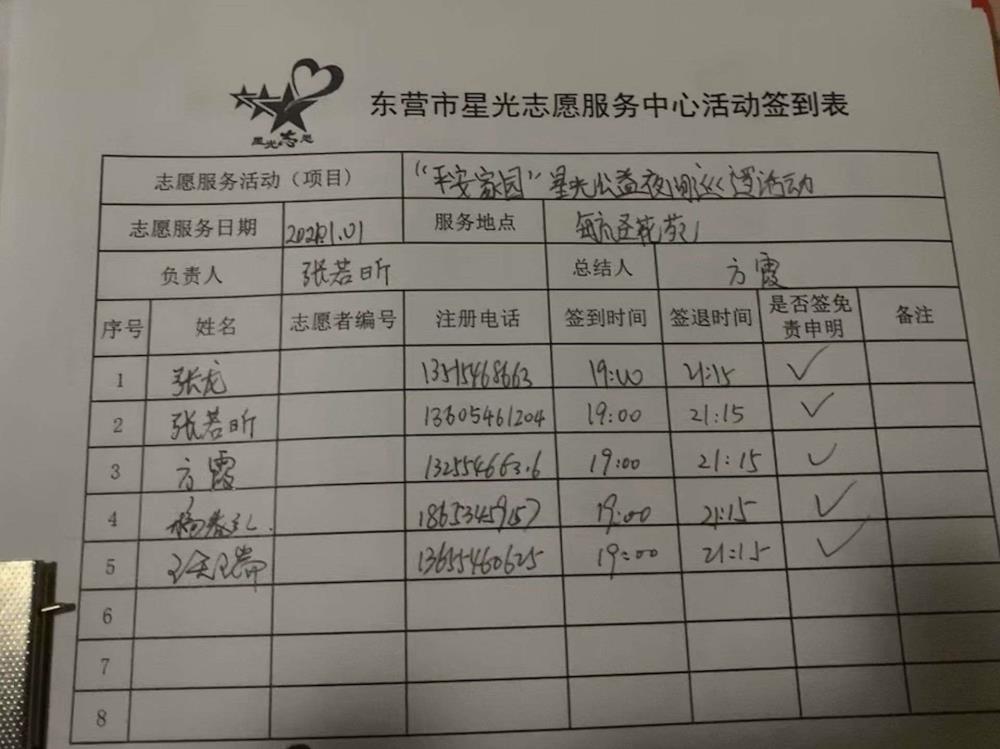 星光志愿
东营市星光志愿服务中心活动签到表
志愿服务活动（项目） “平安家园”星光公益夜间巡逻活动
志愿服务日期 2021.1.01 服务地点
负责人 张若昕 总结人 方霞
序号 姓名 志愿者编号 注册电话 签到时间 签退时间 是否签免责申明 备注
1 张龙 13515468663 19:00 21:15 ✓
2 张若昕 13605461204 19:00 21:15 ✓
3 方霞 19:00 21:15 ✓
4 18653459157 19:00 21:15 ✓
5 13655460625 19:00 21:15 ✓
6
7
8